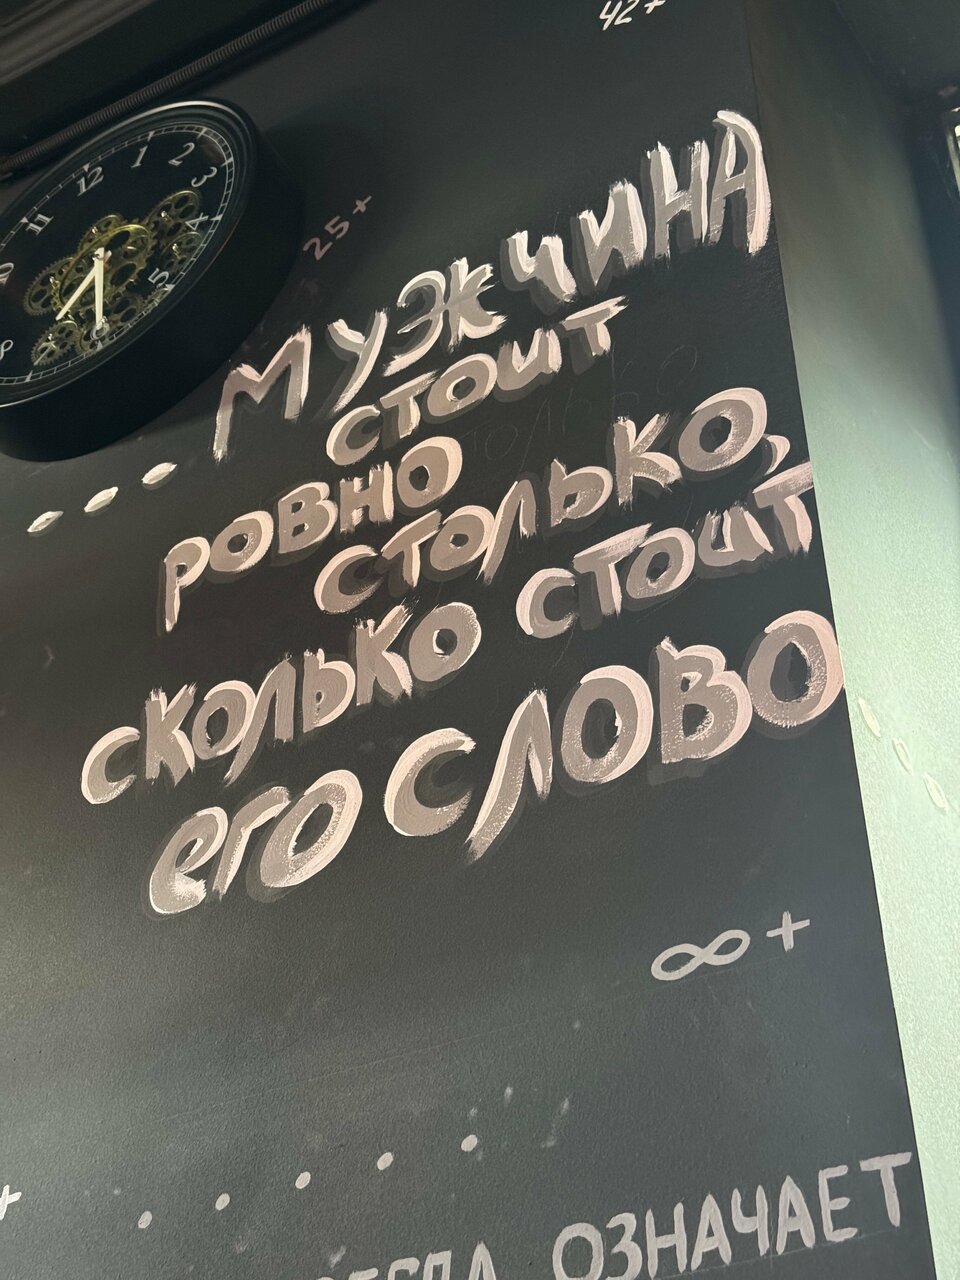 42+
12
1
2
3
4
5
6
8
10
11
25+
...МУЖЧИНА
стоит
РОВНО
столько,
сколько стоит
его СЛОВО
∞+
+
.....
ОЗНАЧАЕТ